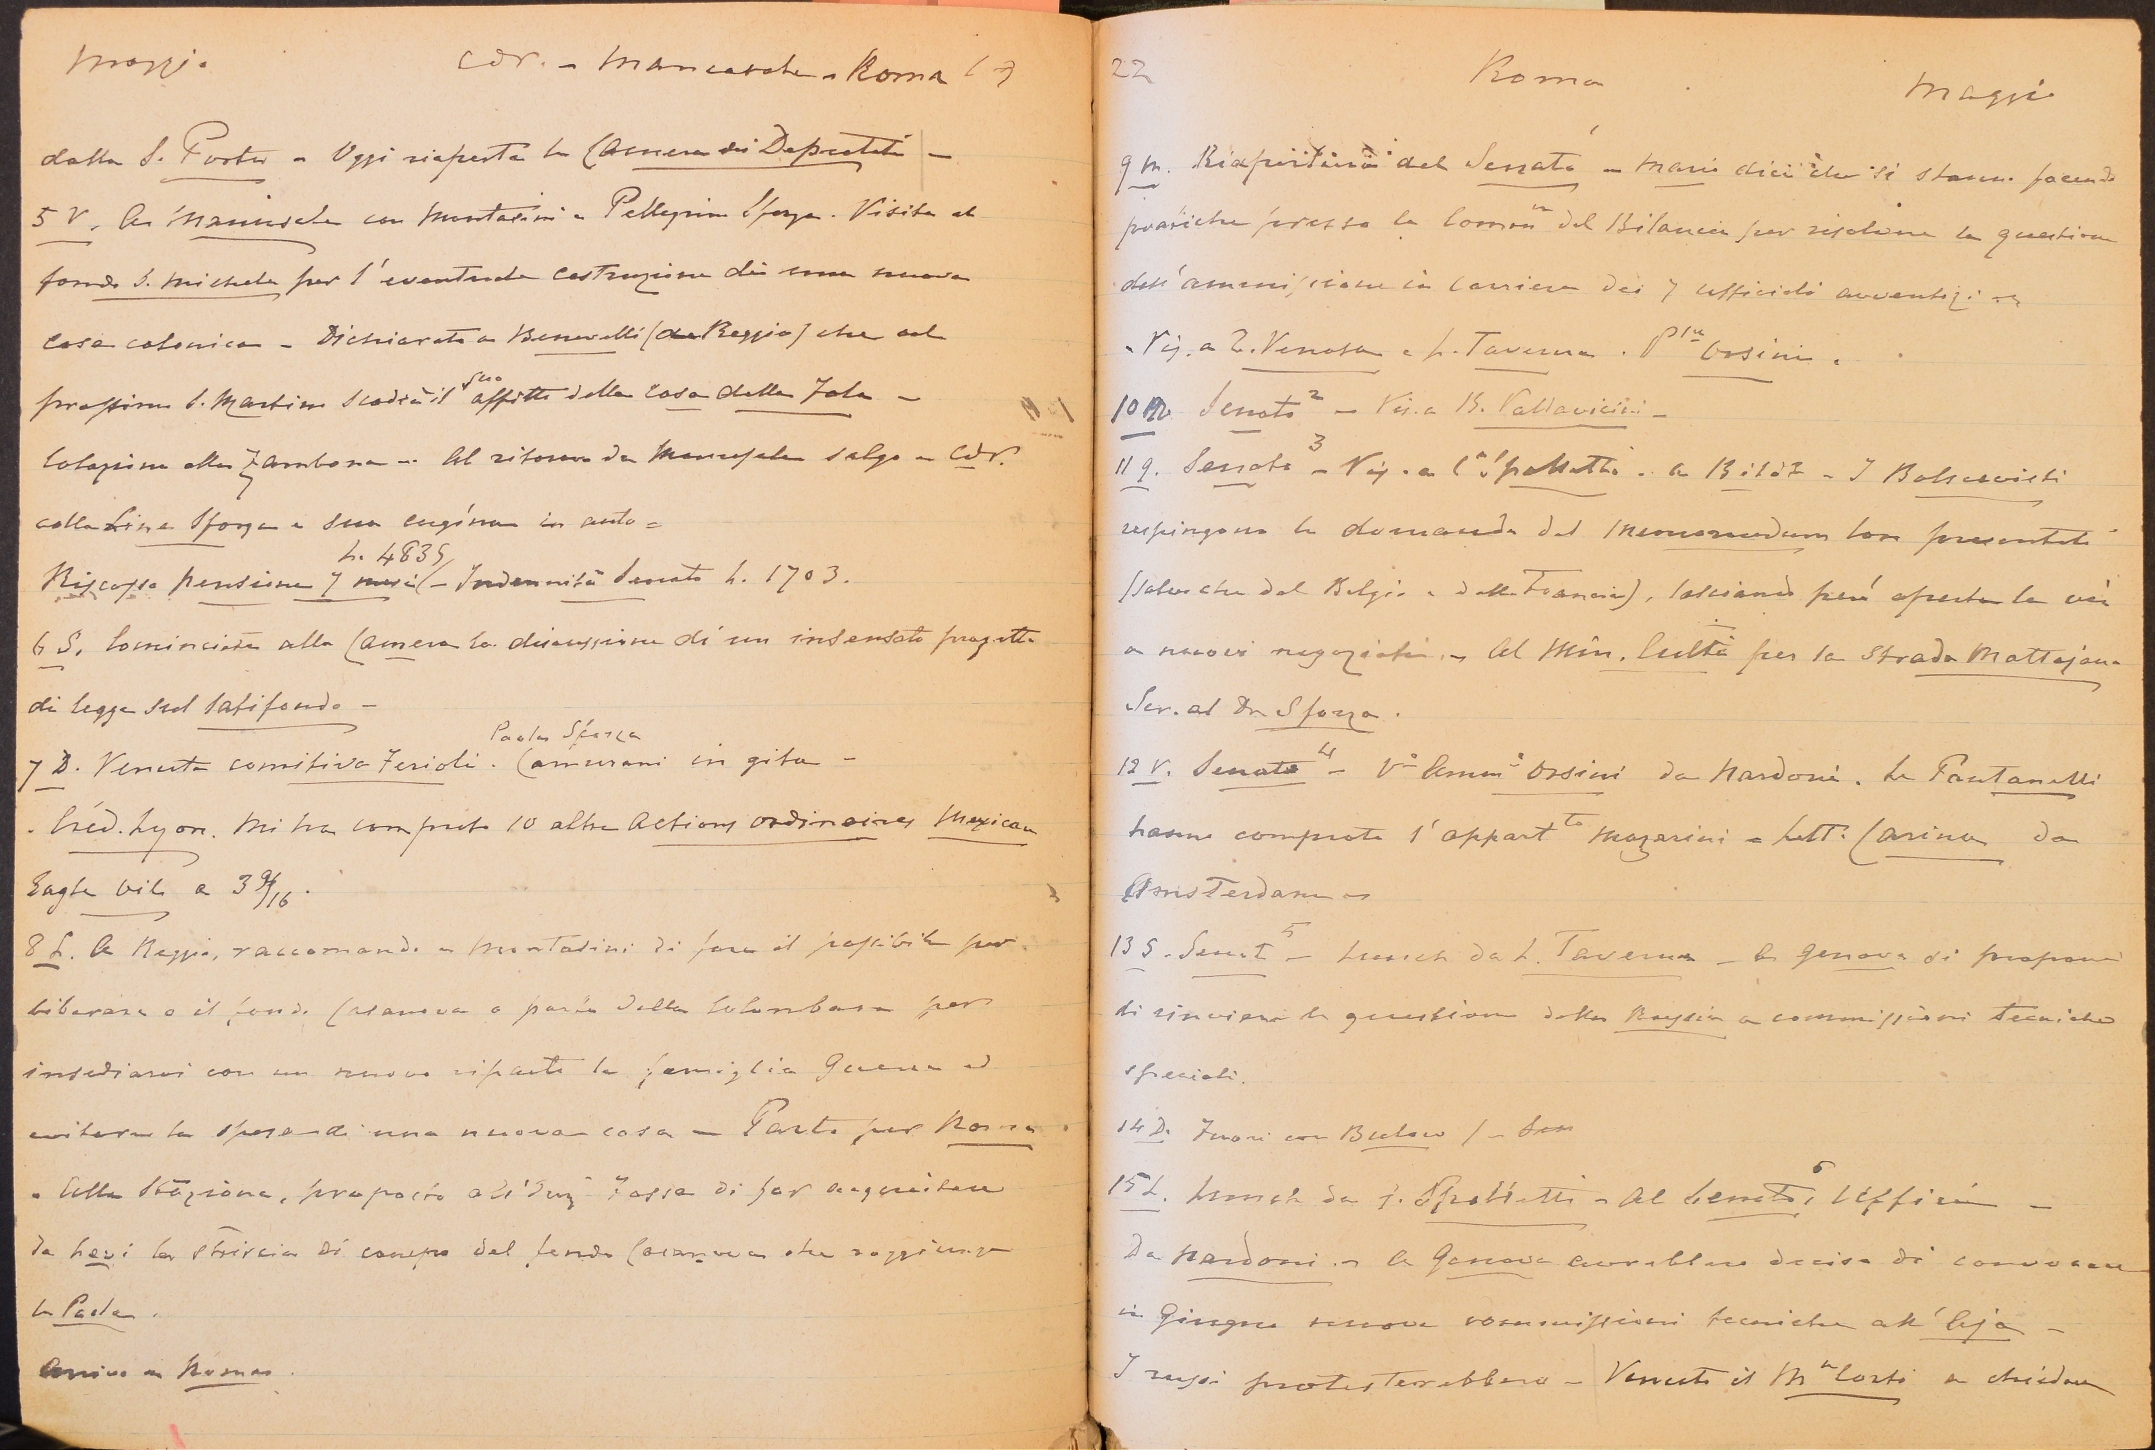 Maggio Cdr. - Mancasale - Roma
dalla S. Porter - Oggi riaperta la Camera dei Deputati -
5 V. A Mancasale con Montasini e Pellegrino Sforza. Visita al
fondo S. Michele per l'eventuale costruzione di una nuova
casa colonica - Dichiarato a Benevelli (da Reggio) che col
prossimo S. Martino scadrà il suo affitto della casa della Fola -
Colazione alla Zambona - Al ritorno da Mancasale salgo a Cdr.
colla Lina Sforza e sua cugina in auto =
L. 4835
Riscosso pensione 7 mesi (- Indennità Senato L. 1703.
6 S. Cominciata alla Camera la discussione di un insensato progetto
di legge sul latifondo -
Paola Sforza
7 D. Venuta comitiva Ferioli. Camurani in gita -
- Créd. Lyon. mi ha comprato 10 altre Actions ordinaires Mexican
Eagle Oil a 3 9/16.
8 L. A Reggio, raccomando a Montasini di fare il possibile per
liberare o il fondo Casanova o parte della Colombara per
insediarvi con un nuovo riparto la famiglia Guerra ed
evitare la spesa di una nuova casa - Parto per Roma.
- Alla Stazione, proposto all'Ing. Fossa di far acquistare
da Levi la striscia di campo del fondo Casanova che raggiunge
la Paola.
Arrivo a Roma.
22 Roma Maggio
9 M. Riapertura del Senato - Mario dice che si stanno facendo
pratiche presso la Commne del Bilancio per risolvere la questione
dell'ammissione in carriera dei 7 ufficiali avventizi -
- Vis. a T. Venosa e L. Taverna. Pssa Orsini.
10 M. Senato 2 - Vis. a B. Pallavicini -
11 G. Senato 3 - Vis. a Ca Spalletti. a Bildt - I Bolscevichi
respingono la domanda del Memorandum loro presentato
(salvo che dal Belgio e dalla Francia), lasciando però aperta la via
a nuovi negoziati. - Al Min. Cultà per la strada Mattajana
Scr. al Dr Sforza.
12 V. Senato 4 - Va Ammne Orsini da Nardoni. Le Fontanelli
hanno comprato l'appartto Mazarini - Lett. Carina da
Amsterdam -
13 S. Senato 5 - Lunch da L. Taverna - A Genova si propone
di rinviare la questione della Russia a commissioni tecniche
speciali.
14 D. Fuori con Bulow
15 L. Lunch da G. Spalletti - Al Senato 6, Uffici -
Da Nardoni. - A Genova avrebbero deciso di convocare
in Giugno nuove commissioni tecniche all'Aja -
I russi protesterebbero - Venuto il Mse Corti a chiedere